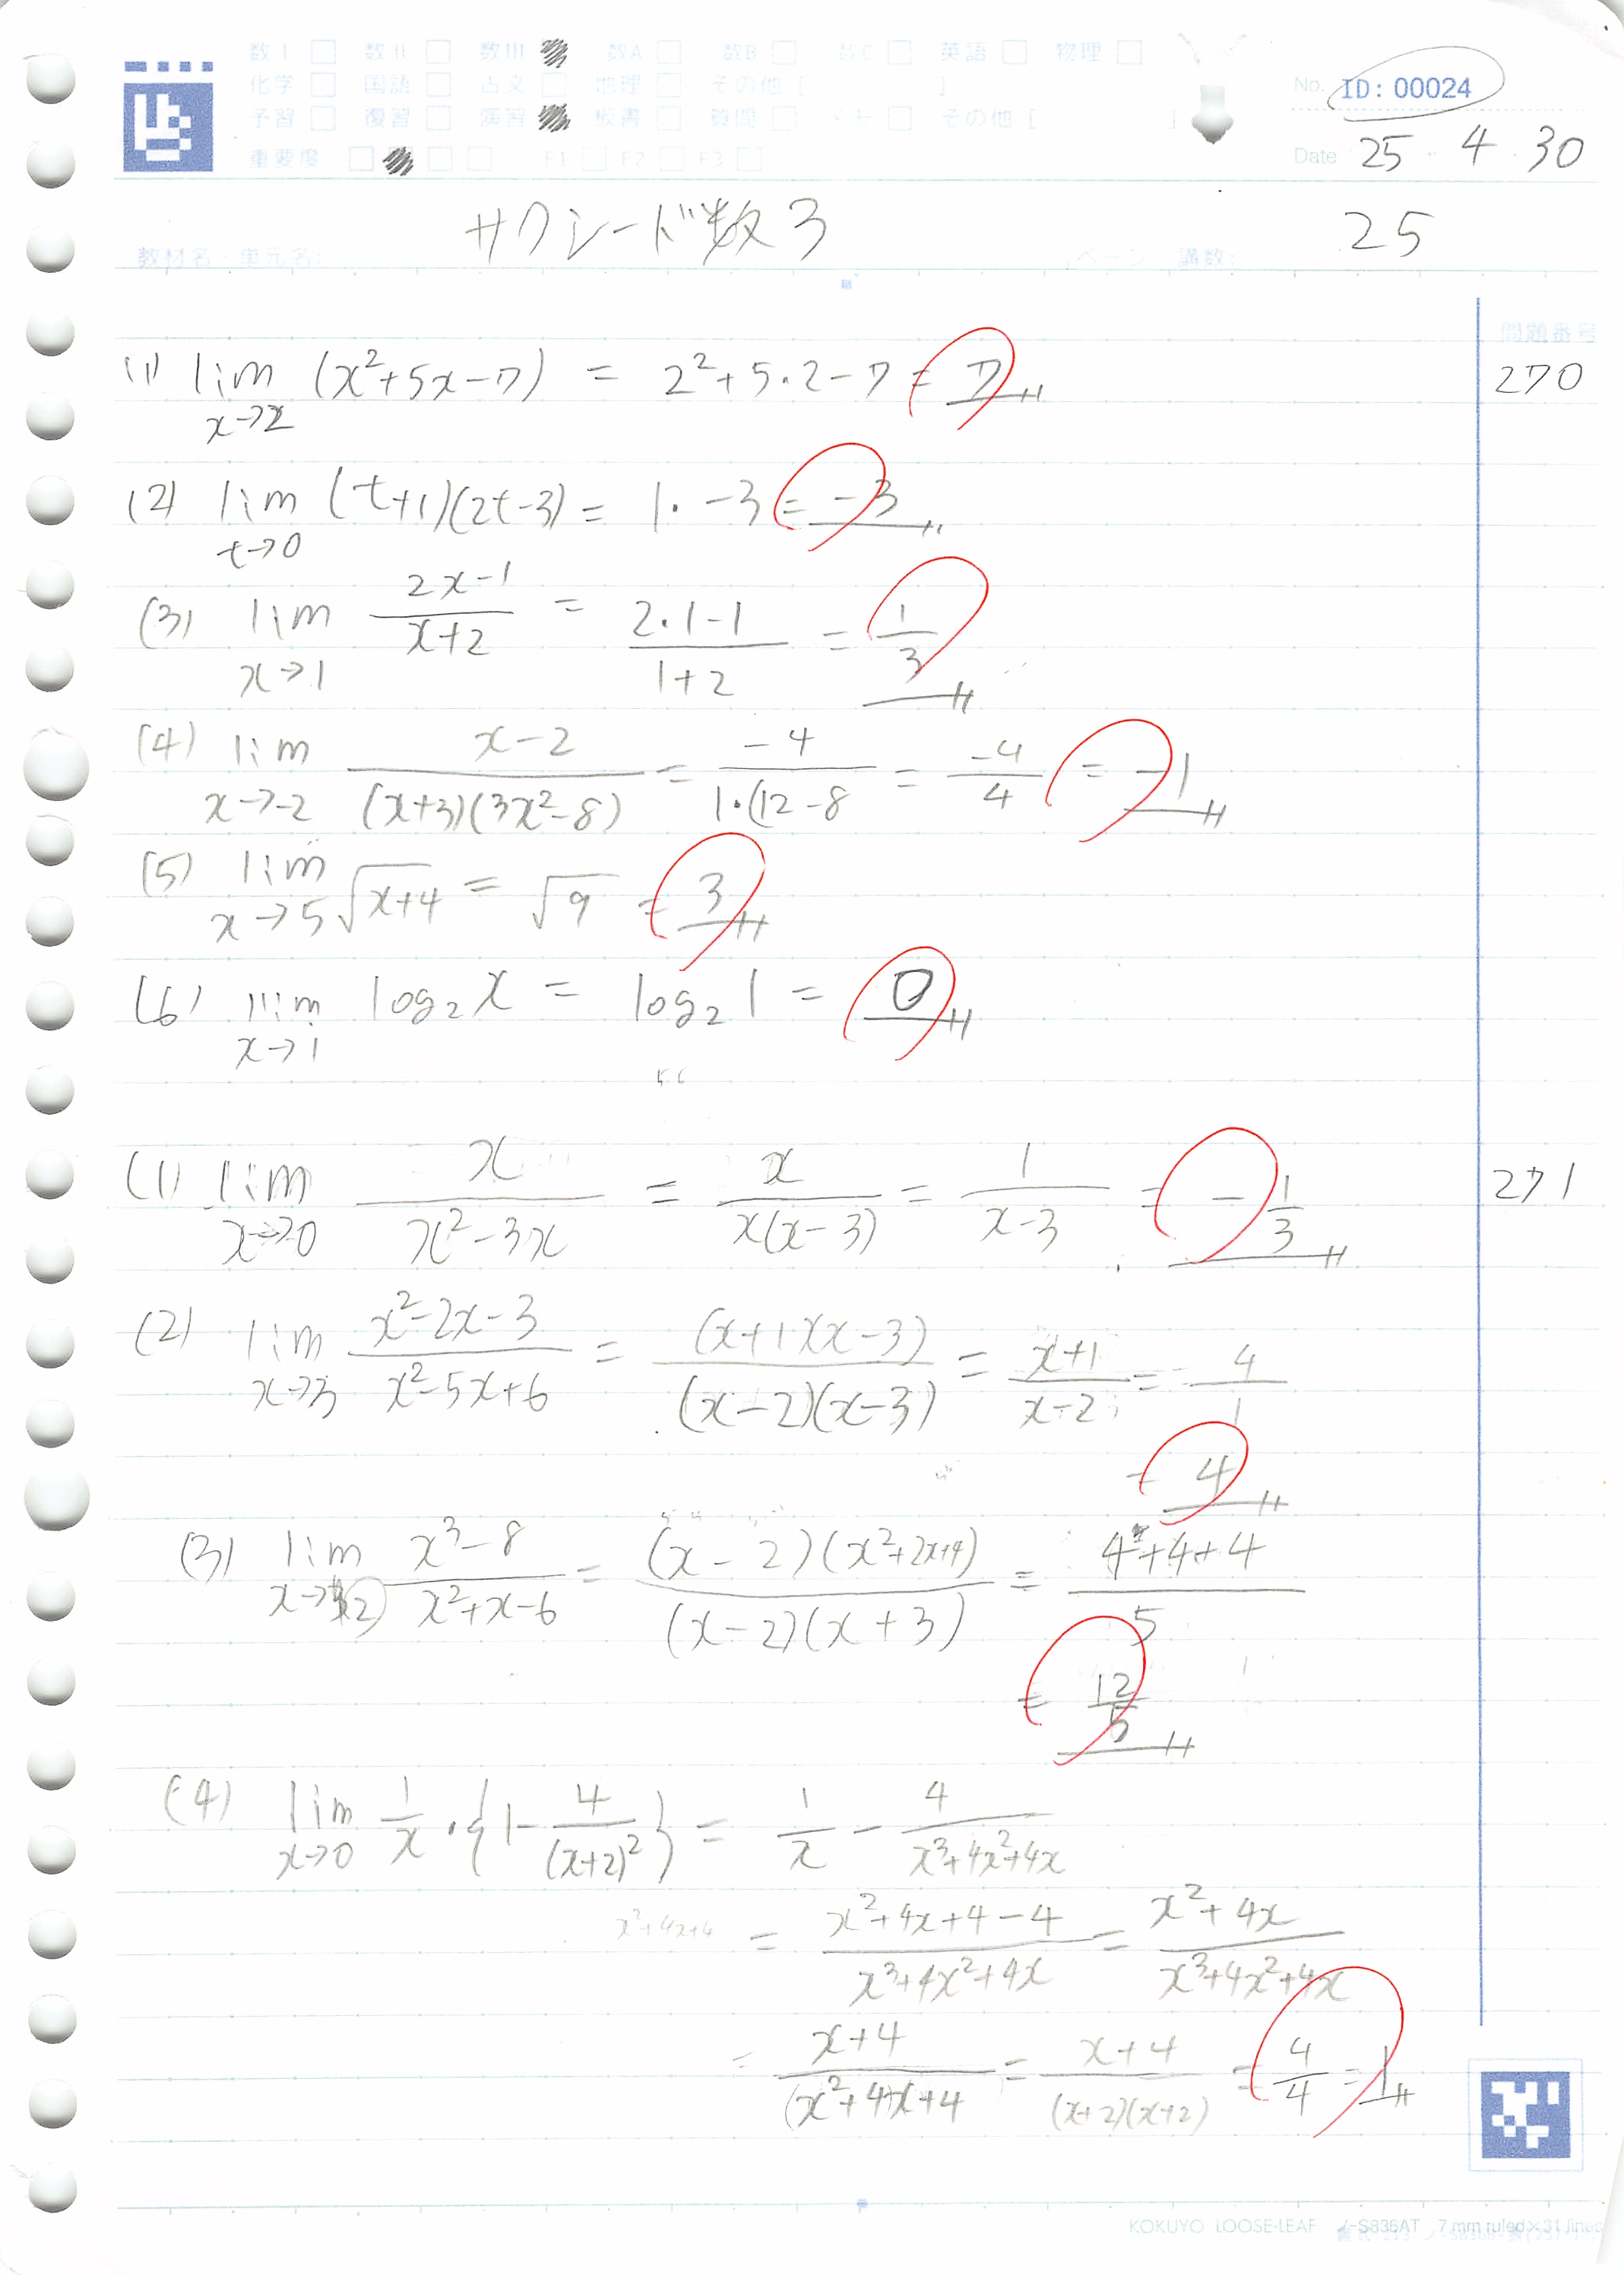 数I □ 数II □ 数III 数A □ 数B □ 数C □ 英語 □ 物理 □
化学 □ 国語 □ 古文 □ 地理 □ その他 [ ]
予習 □ 復習 □ 演習 板書 □ 質問 □ □ その他 [ ]
重要度 □ □ □ F1 □ F2 □ F3 □
No. ID: 00024
Date 25 · 4 · 30
教材名・単元名: サクシード数3 ページ・講数: 25
問題番号
(1) lim x→2 (x²+5x-7) = 2²+5·2-7 = 7 270
(2) lim t→0 (t+1)(2t-3) = 1·-3 = -3
(3) lim x→1 (2x-1)/(x+2) = (2·1-1)/(1+2) = 1/3
(4) lim x→-2 (x-2)/((x+3)(3x²-8)) = -4/(1·(12-8) = -4/4 = -1
(5) lim x→5 √(x+4) = √9 = 3
(6) lim x→1 log₂x = log₂1 = 0
(1) lim x→0 x/(x²-3x) = x/(x(x-3)) = 1/(x-3) = -1/3 271
(2) lim x→3 (x²-2x-3)/(x²-5x+6) = ((x+1)(x-3))/((x-2)(x-3)) = (x+1)/(x-2) = 4/1
= 4
(3) lim x→2 (x³-8)/(x²+x-6) = ((x-2)(x²+2x+4))/((x-2)(x+3)) = (4+4+4)/5
= 12/5
(4) lim x→0 1/x·{1-4/(x+2)²} = 1/x - 4/(x³+4x²+4x)
x²+4x+4 = (x²+4x+4-4)/(x³+4x²+4x) = (x²+4x)/(x³+4x²+4x)
= (x+4)/(x²+4x+4) = (x+4)/((x+2)(x+2)) = 4/4 = 1
KOKUYO LOOSE-LEAF ノ-S836AT 7 mm ruled×31 lines